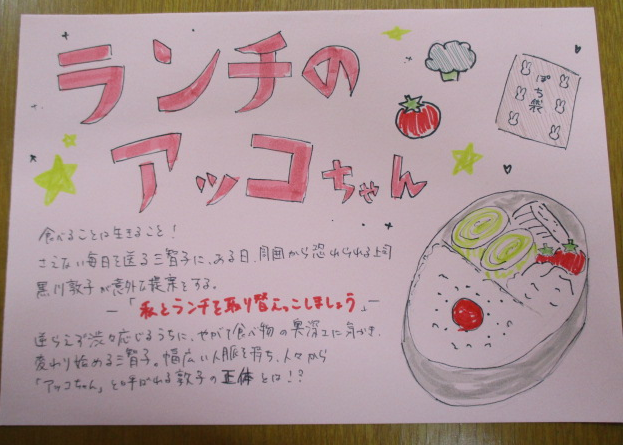 ランチの
アッコちゃん
ぽち袋
食べることは生きること!
さえない毎日を送る三智子に、ある日、周囲から恐れられる上司
黒川敦子が意外な提案をする。
―「私とランチを取り替えっこしましょう」―
逆らえず渋々応じるうちに、やがて食べ物の奥深さに気づき、
変わり始める三智子。幅広い人脈を持ち、人々から
「アッコちゃん」と呼ばれる敦子の正体とは!?